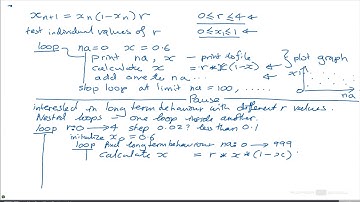 x_{n+1} = x_n(1-x_n) r    0 ≤ r ≤ 4
test individual values of r    0 ≤ x_i ≤ 1
loop na=0 x = 0.6
print na, x — print to file
calculate x = r*x*(1-x)
add one to na...
stop loop at limit na = 100, ....
plot graph
x
na
Pause
interested in long term behaviour with different r values.
Nested loops — one loop inside another.
loop r:0 → 4 step 0.02? less than 0.1
initialize x_0 = 0.6
loop find long term behaviour na: 0 → 999
calculate x = r * x * (1-x)